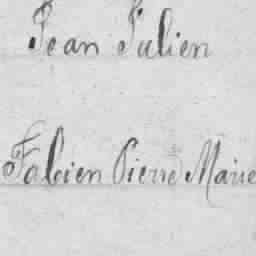 Jean Julien
Fabien Pierre Marie